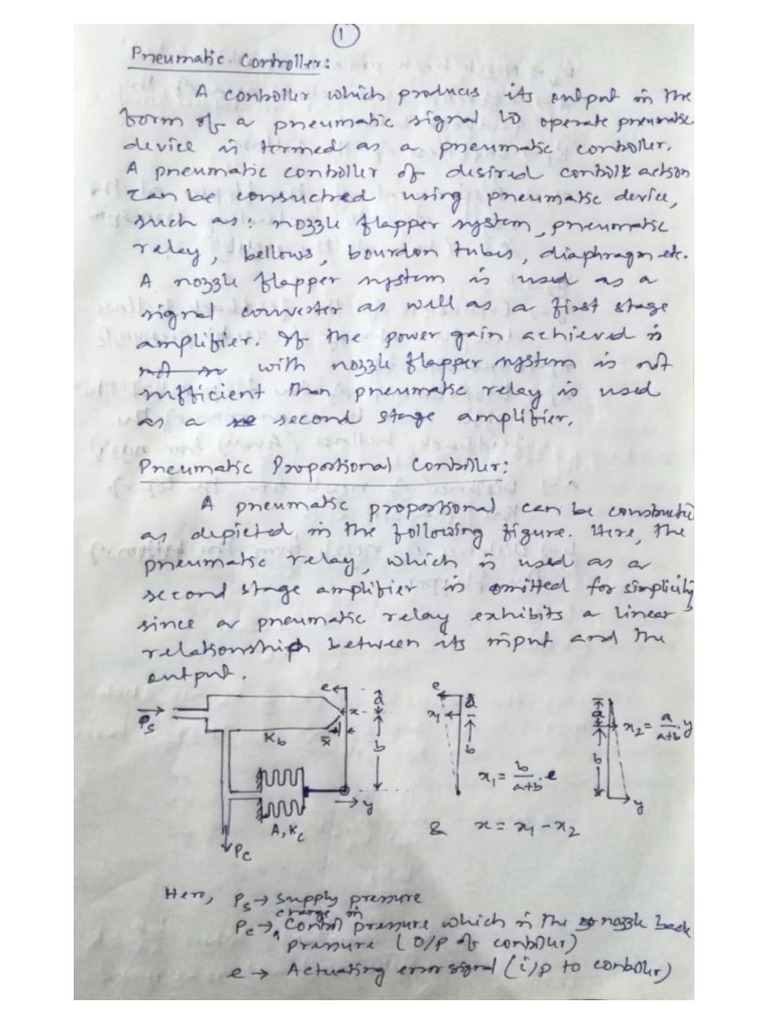 1
Pneumatic Controller:
A controller which produces its output in the
form of a pneumatic signal to operate pneumatic
device is termed as a pneumatic controller.
A pneumatic controller of desired control action
can be consuctred using pneumatic device,
such as: nozzle flapper system, pneumatic
relay, bellows, bourdon tubes, diaphragm etc.
A nozzle flapper system is used as a
signal converter as well as a first stage
amplifier. If the power gain achieved is
with nozzle flapper system is not
sufficient then pneumatic relay is used
as a second stage amplifier.
Pneumatic Proportional Controller:
A pneumatic proportional can be constructe
as depicted in the following figure. Here, the
pneumatic relay, which is used as a
second stage amplifier is omitted for simplicity
since a pneumatic relay exhibits a linear
relationship between its input and the
output.
Ps
e
a
x
b
Kb
x̄
A, Kc
y
Pc
e
a
x1
b
x1 = b/(a+b) . e
a
b
x2 = a/(a+b) . y
y
& x = x1 - x2
Here, Ps → supply pressure
Pc → change in Control pressure which is the nozzle back
pressure (O/P of controller)
e → Actuating error signal (i/p to controller)